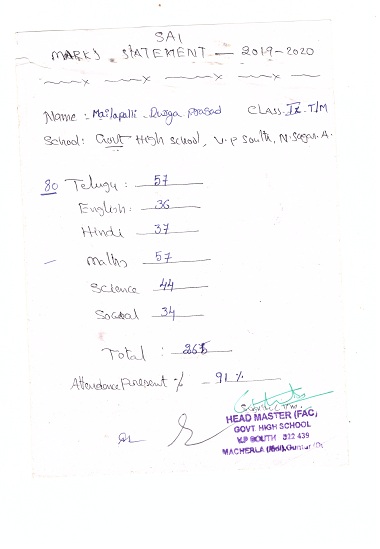 SAI
MARKS STATEMENT — 2019-2020
Name : Mailapalli Durga Prasad CLASS. IX T/M
School: Govt High school, V.P South, N.Sagar.A.
80 Telugu : 57
English: 36
Hindi : 37
maths 57
Science 44
Social 34
Total : 265
Attendance Present % 91 %
HEAD MASTER (FAC)
GOVT HIGH SCHOOL
V.P SOUTH 522 439
MACHERLA (Md),Guntur